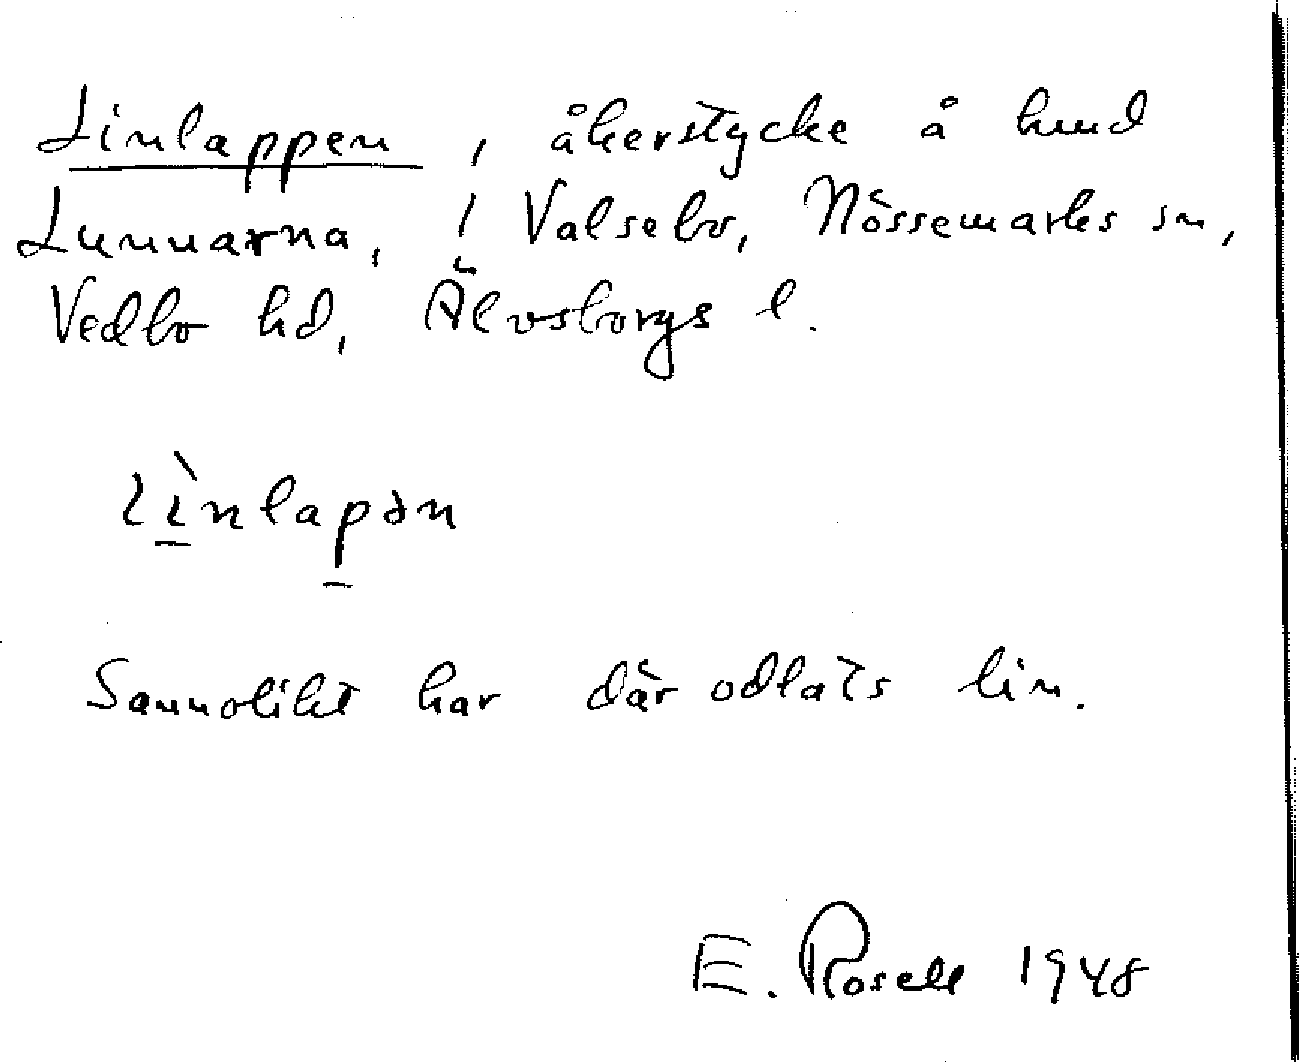 Linlappen, åkerstycke å hmd
Lunnarna, i Valsebo, Nössemarks sn,
Vedbo hd, Älvsborgs l.
lìnlapən
Sannolikt har där odlats lin.
E. Rosell 1948